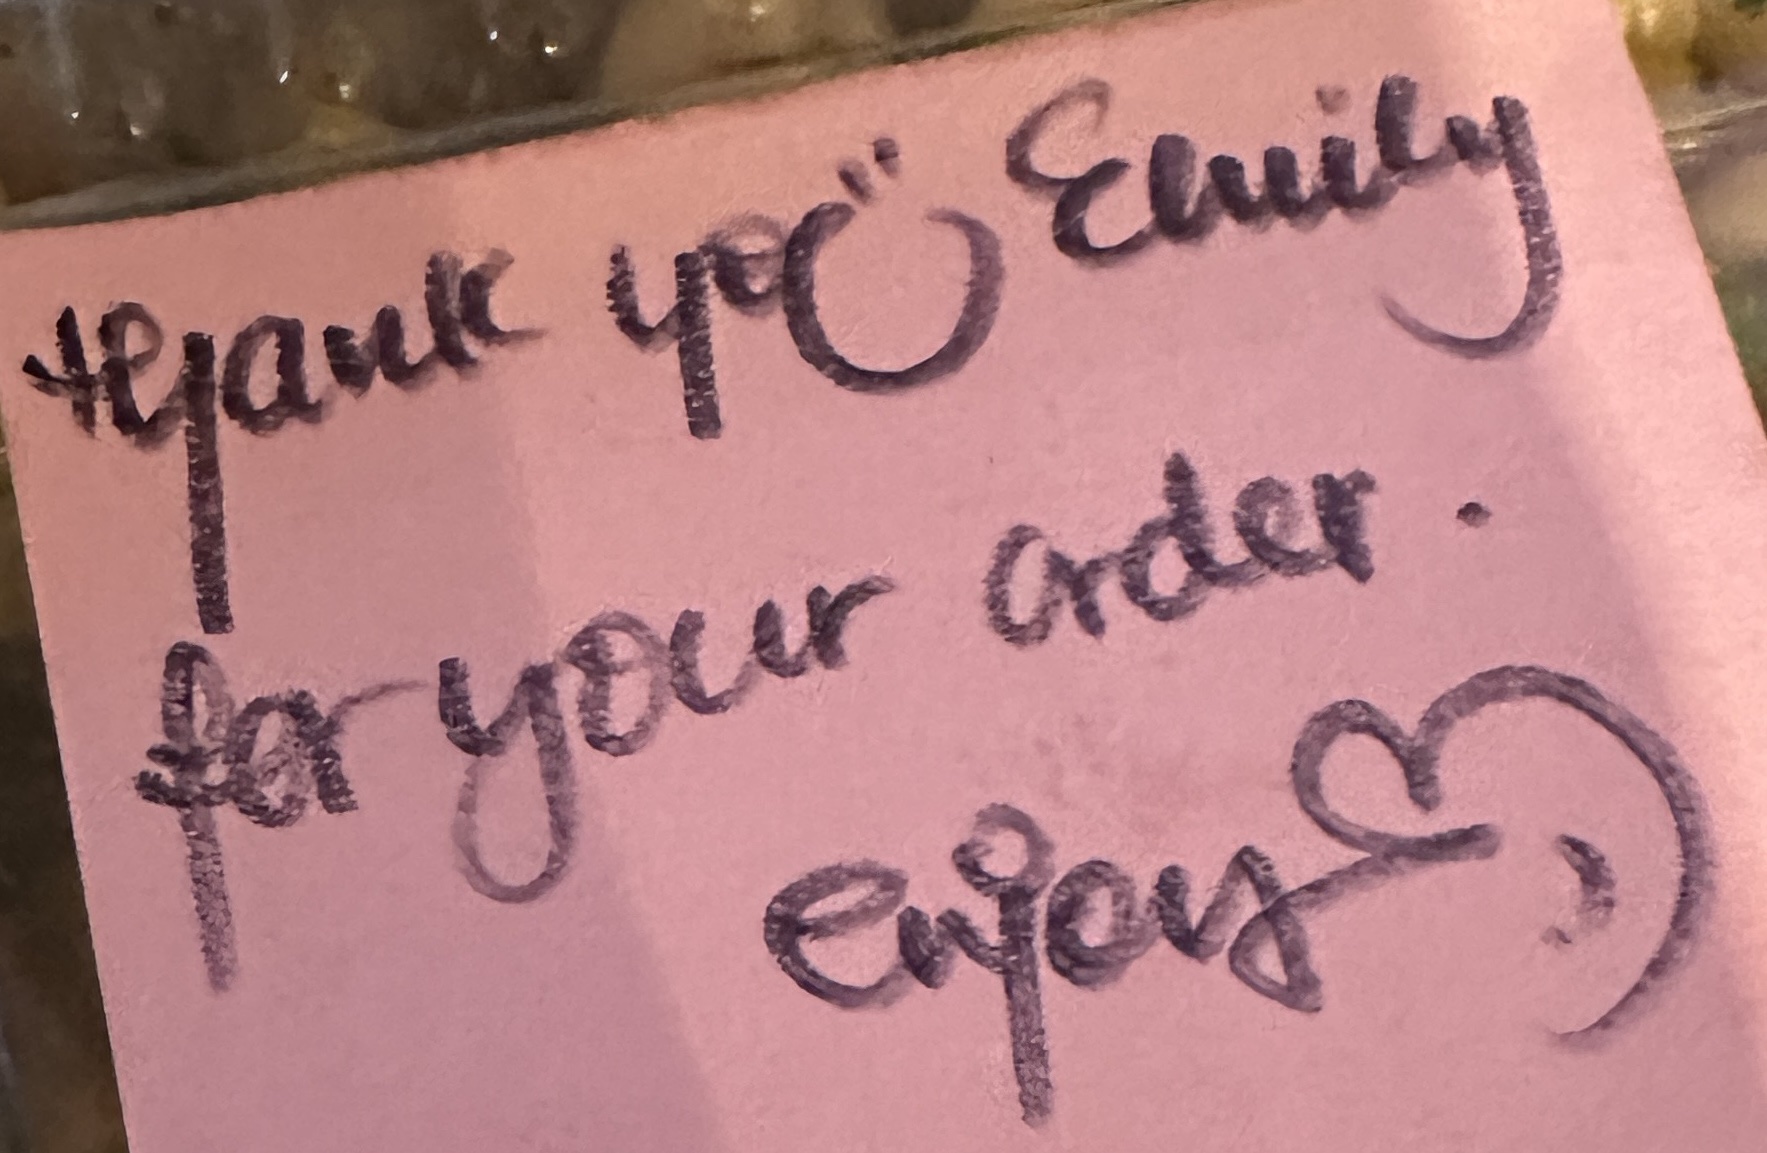 thank you Emily
for your order.
enjoy